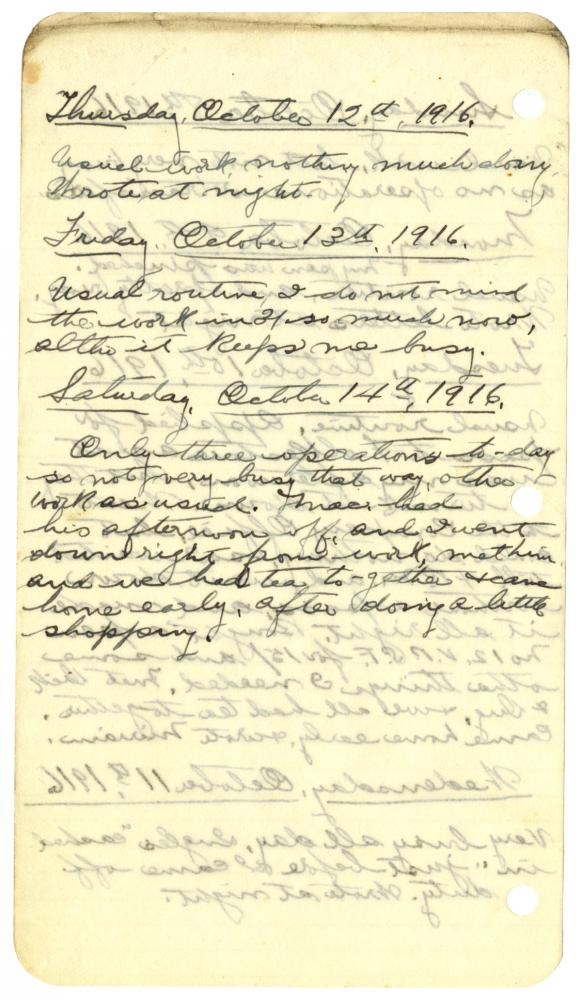 Thursday, October 12.th, 1916.
Usual work, nothing much doing,
Wrote at night.
Friday, October 13th, 1916.
Usual routine, I do not mind
the work in so much now,
altho it keeps me busy.
Saturday, October 14th, 1916.
Only three operations to-day
so not very busy that way, other
work as usual. had
his afternoon off, and I went
down right from work, met him
and we had tea to-gether & came
home early, after doing a little
shopping.